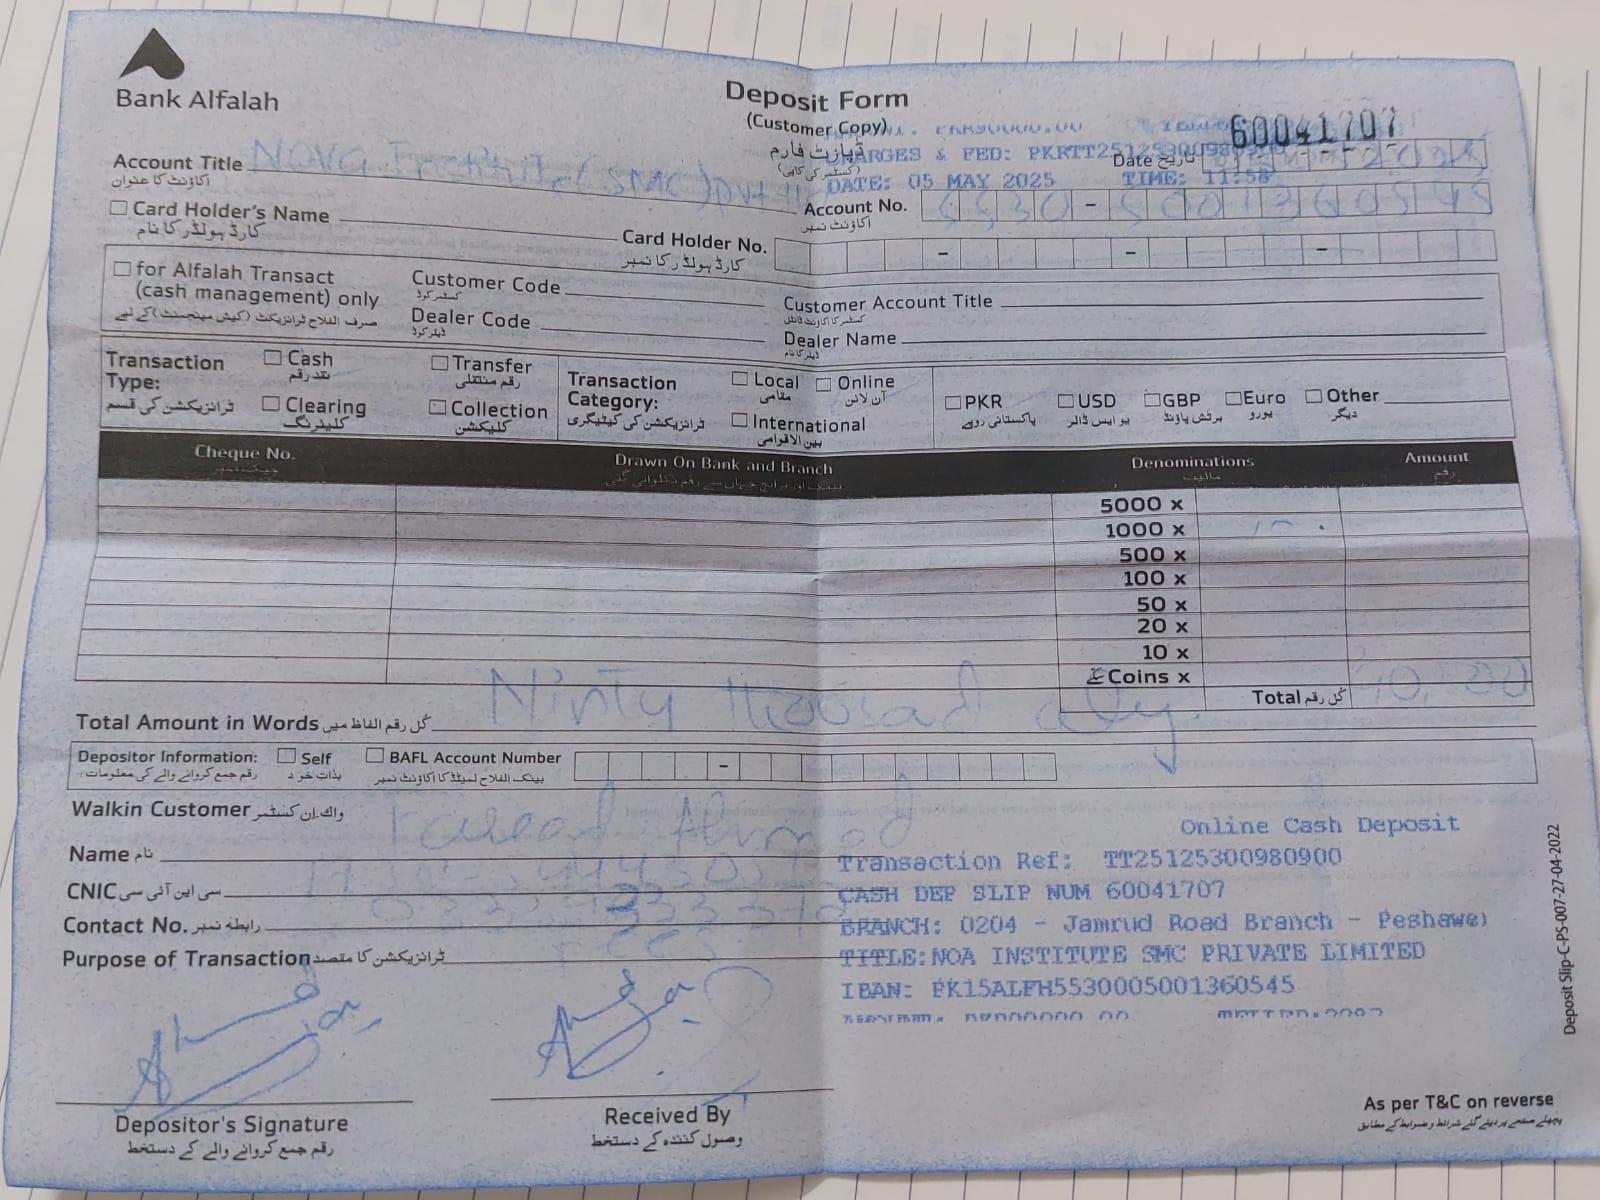 Bank Alfalah
Deposit Form
(Customer Copy)
ڈپازٹ فارم
(کسٹمر کی کاپی)
60041707
CHARGES & FED: PKR
DATE: 05 MAY 2025 TIME: 11:58
Date تاریخ
Account Title
اکاؤنٹ کا عنوان
Account No.
اکاؤنٹ نمبر
Card Holder's Name
کارڈ ہولڈر کا نام
Card Holder No.
کارڈ ہولڈر کا نمبر
for Alfalah Transact
(cash management) only
صرف الفلاح ٹرانزیکٹ (کیش مینجمنٹ) کے لیے
Customer Code
کسٹمر کوڈ
Customer Account Title
کسٹمر کا اکاؤنٹ ٹائٹل
Dealer Code
ڈیلر کوڈ
Dealer Name
ڈیلر کا نام
Transaction Type:
ٹرانزیکشن کی قسم
Cash
نقد رقم
Transfer
رقم منتقلی
Clearing
کلیئرنگ
Collection
کلیکشن
Transaction Category:
ٹرانزیکشن کی کیٹیگری
Local
مقامی
Online
آن لائن
International
بین الاقوامی
PKR
پاکستانی روپے
USD
یو ایس ڈالر
GBP
برٹش پاؤنڈ
Euro
یورو
Other
دیگر
Cheque No.
چیک نمبر
Drawn On Bank and Branch
Denominations
مالیت
Amount
رقم
5000 x
1000 x
500 x
100 x
50 x
20 x
10 x
Coins x
Total کُل رقم
Total Amount in Words کُل رقم الفاظ میں
Ninty thousad only
Depositor Information:
رقم جمع کروانے والے کی معلومات:
Self
بذاتِ خود
BAFL Account Number
بینک الفلاح لمیٹڈ کا اکاؤنٹ نمبر
Walkin Customer واک۔اِن کسٹمر
Name نام
Ahmad
CNIC سی این آئی سی
Contact No. رابطہ نمبر
Purpose of Transaction ٹرانزیکشن کا مقصد
Online Cash Deposit
Transaction Ref: TT25125300980900
CASH DEP SLIP NUM 60041707
BRANCH: 0204 - Jamrud Road Branch - Peshawer
TITLE:NOA INSTITUTE SMC PRIVATE LIMITED
IBAN: PK15ALFH5530005001360545
Depositor's Signature
رقم جمع کروانے والے کے دستخط
Received By
وصول کنندہ کے دستخط
As per T&C on reverse
Deposit Slip-C-PS-007-27-04-2022